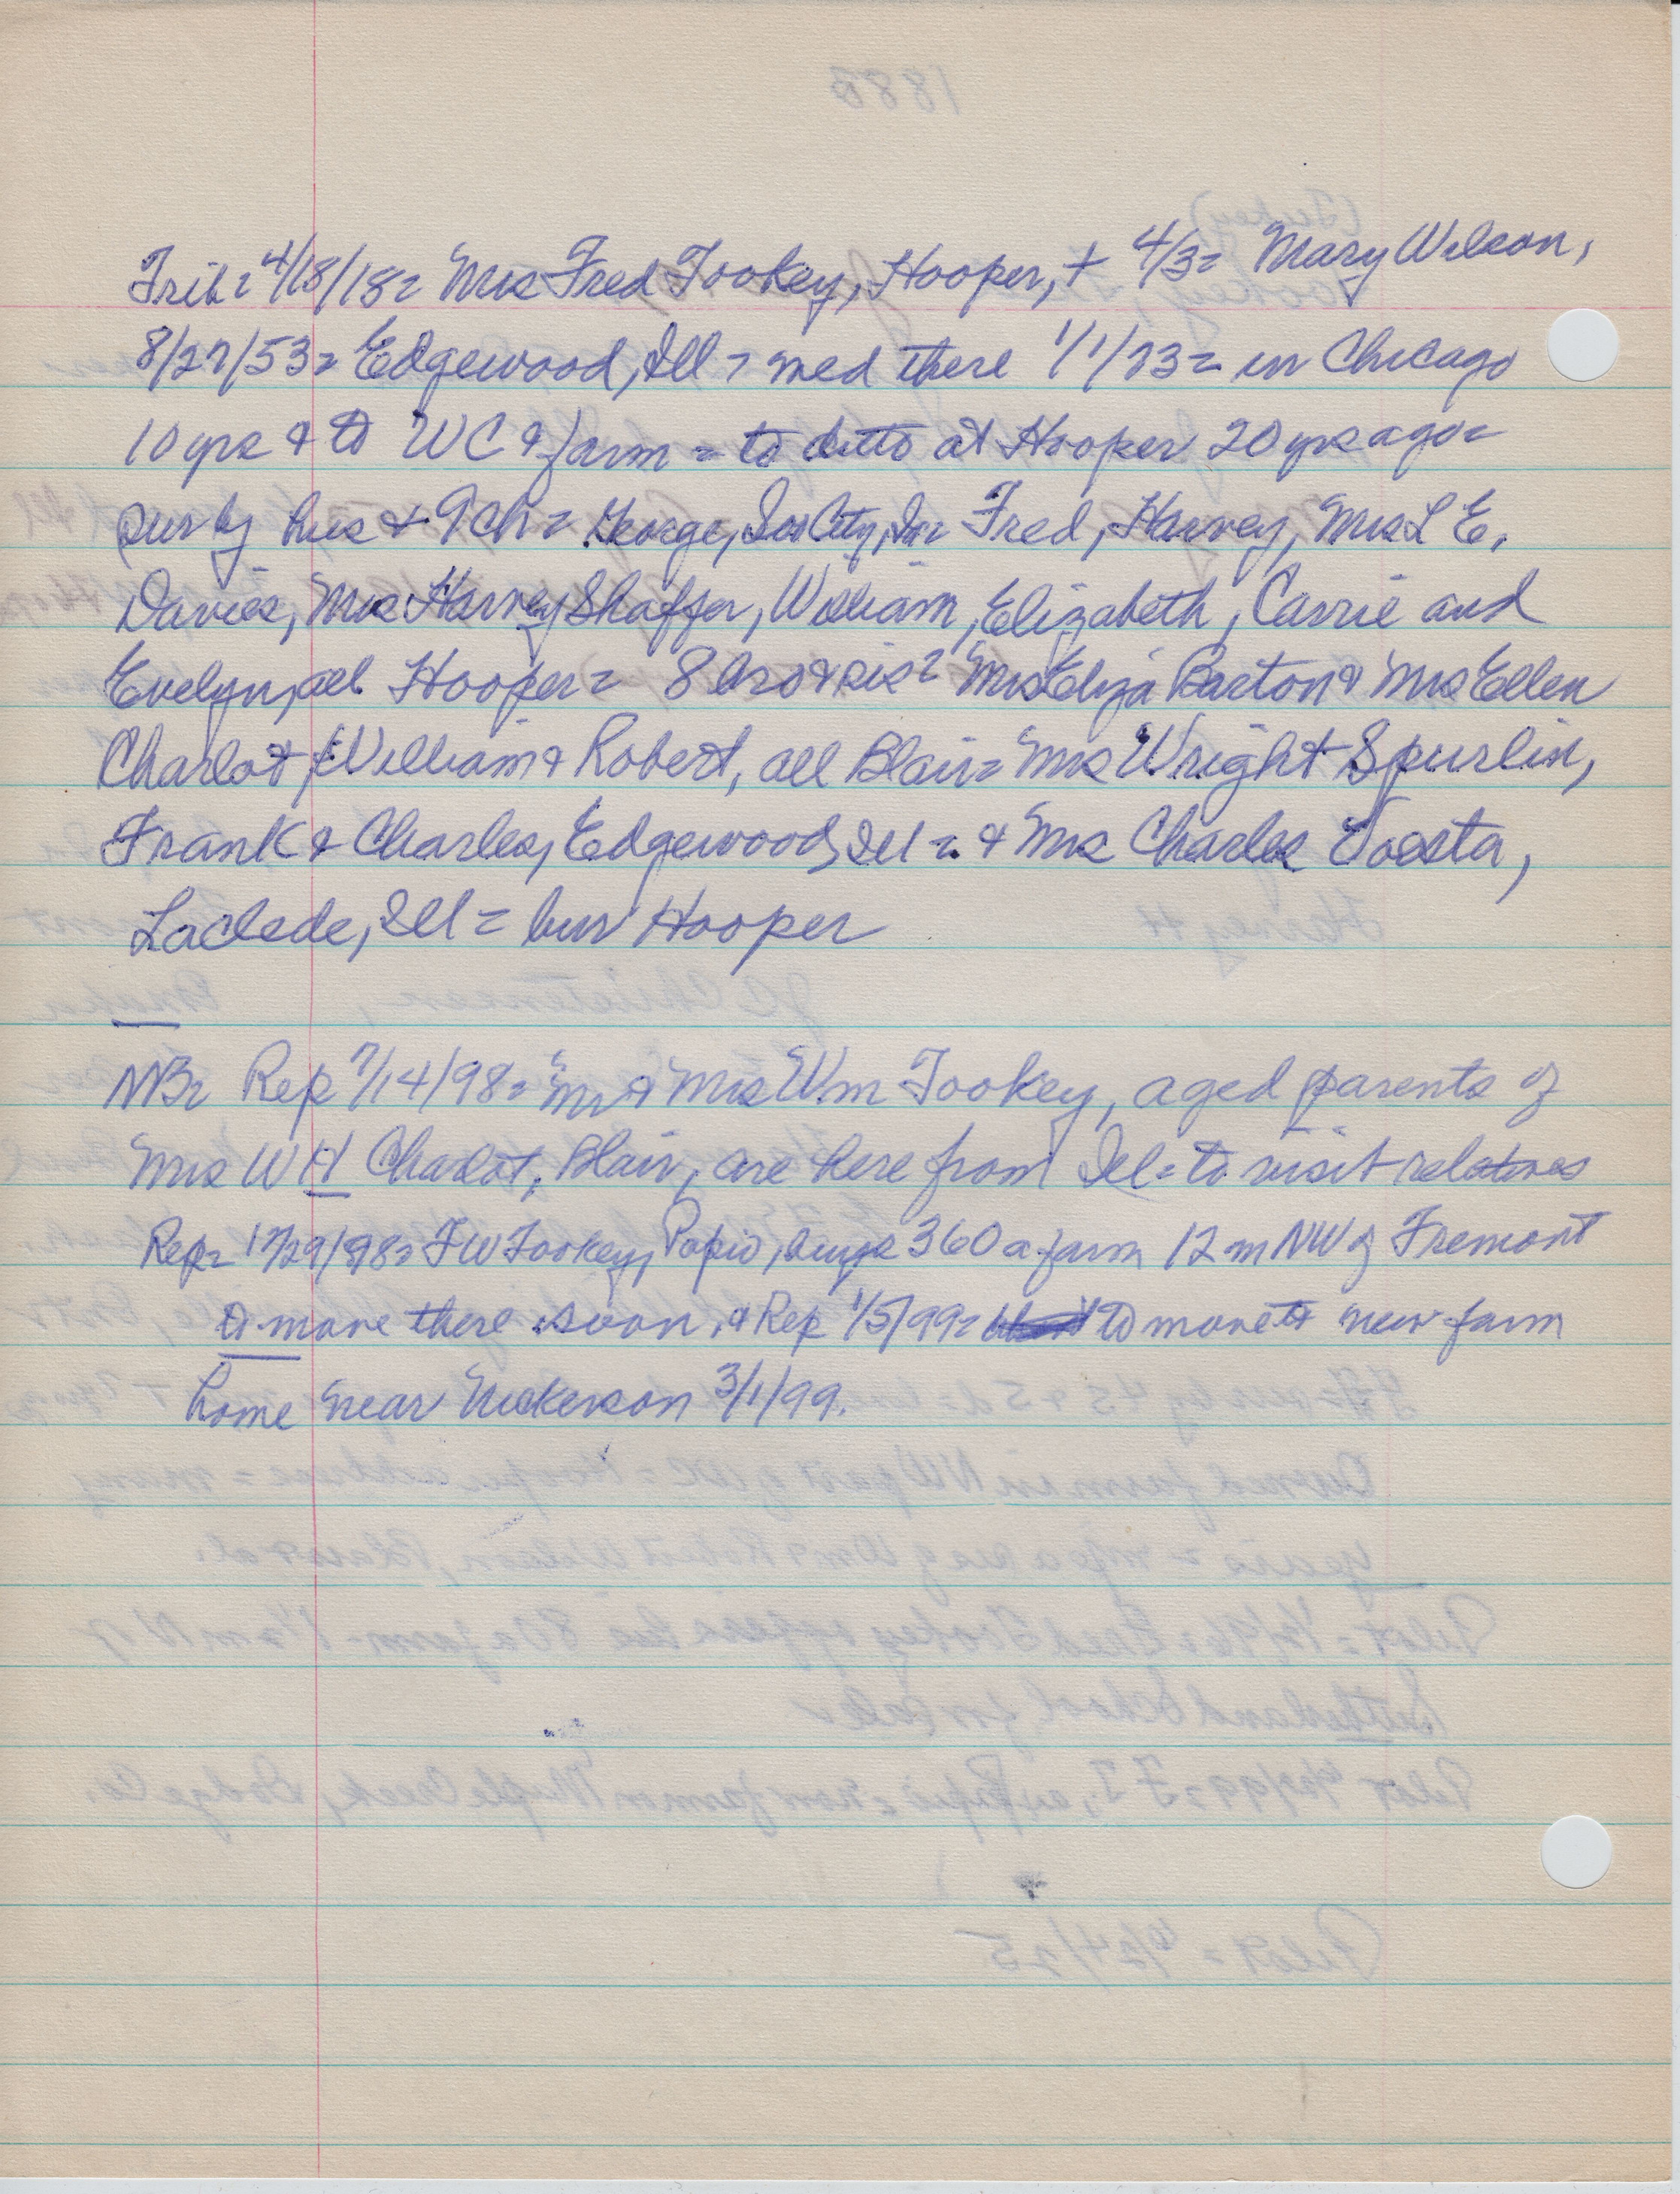 Trib = 4/18/18 = Mrs Fred Tookey, Hooper, + 4/3 = Mary Wilson,
8/27/53 = Edgewood, Ill = med there 1/1/73 = in Chicago
10 yrs & to WC & farm = to ditto at Hooper 20 yrs ago =
sur by hus & 9 ch = George, Sou City, Ia = Fred, Harvey, Mrs L E.
Davies, Mrs Harvey Shaffer, William, Elizabeth, Carrie and
Evelyn, all Hooper = 8 bro & sis = Mrs Eliza Barton & Mrs Ellen
Charlot, William & Robert, all Blair = Mrs Wright Spurlin,
Frank & Charles, Edgewood, Ill = & Mrs Charles
Laclede, Ill = bur Hooper
NB = Rep 7/14/98 = Mr & Mrs Wm Tookey, aged parents of
Mrs W H Charlot, Blair, are here from Ill = to visit relatives
Rep = 12/29/98 = F W Tookey, Papio, buys 360 a farm 12 m NW of Fremont
to move there soon, & Rep 1/5/99 = to move to new farm
home near Nickerson 3/1/99.